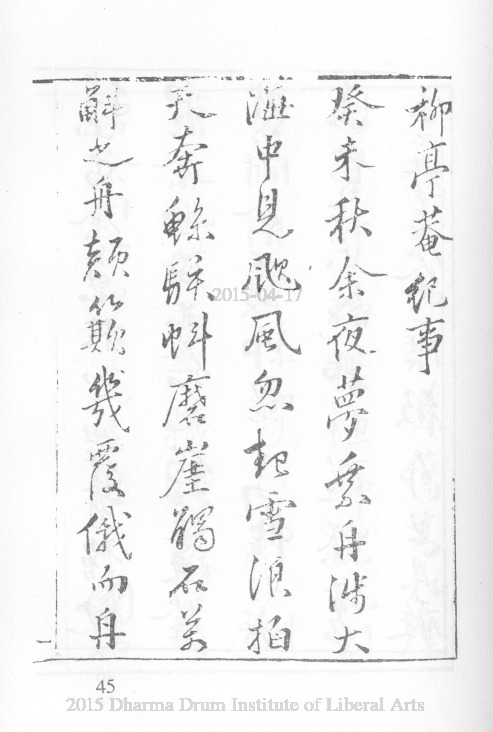 柳亭菴紀事
癸未秋余夜夢乘舟涉大
滙中見颶風忽起雪浪拍
天奔鯨駭蚪磨崖觸石萬
斛之舟顛簸幾覆俄而舟
一
2015-04-17
45
2015 Dharma Drum Institute of Liberal Arts